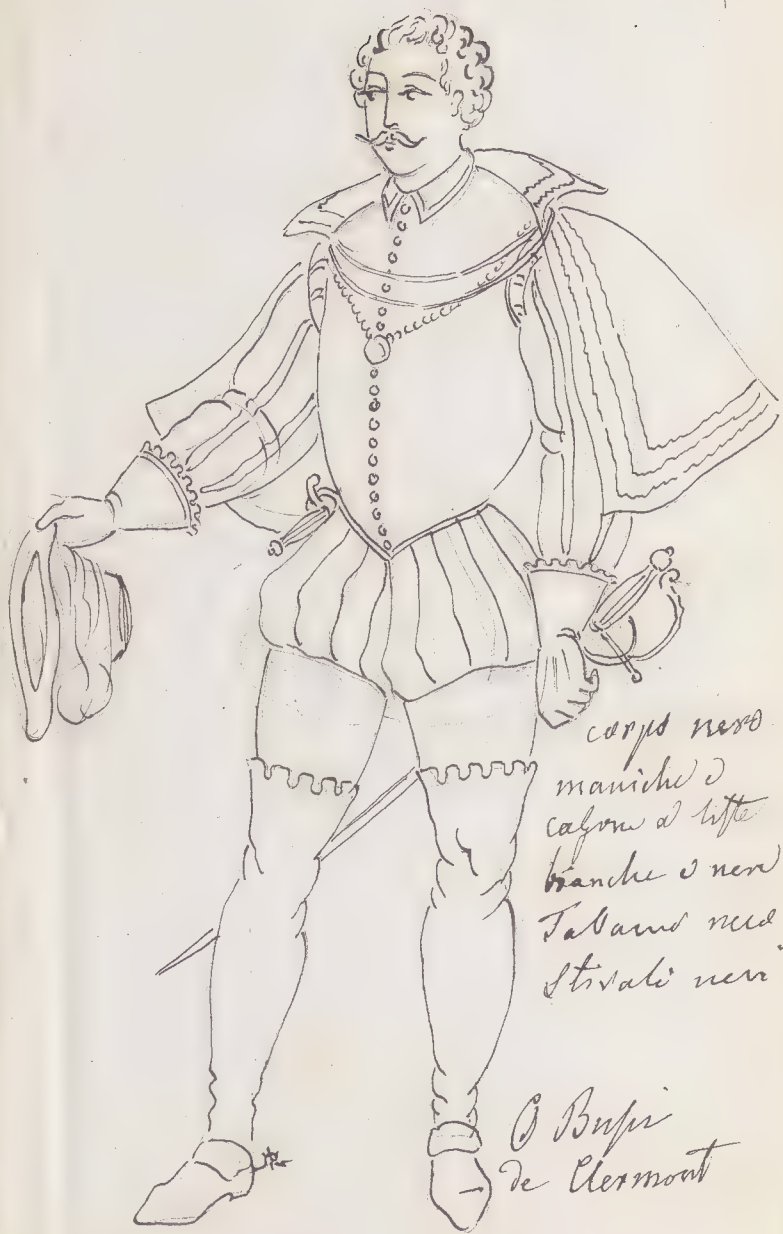 corps nero
maniche e
calzone a liste
bianche e nere
Tabarro nero
Stivali neri
O Bussi
de Clermont